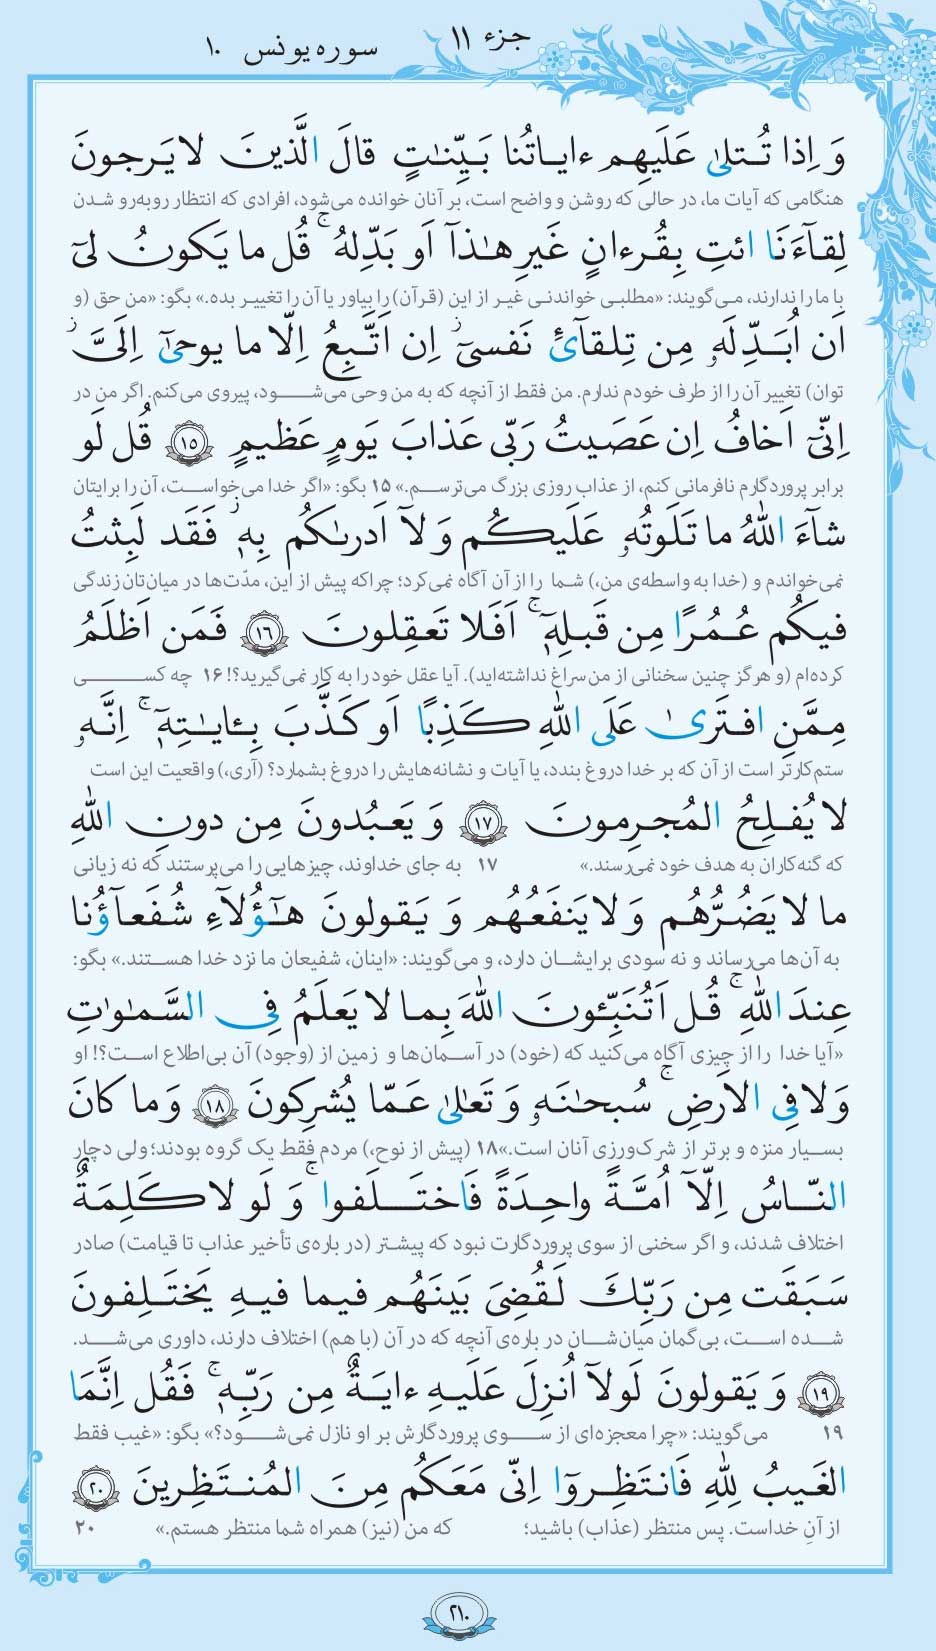 جزء ۱۱
سوره یونس ۱۰
وَ اِذا تُتلىٰ عَلَيهِم ءاياتُنا بَيِّنٰتٍ قالَ الَّذينَ لا يَرجونَ
هنگامی که آیات ما، در حالی که روشن و واضح است، بر آنان خوانده می‌شود، افرادی که انتظار روبه‌رو شدن
لِقآءَنَا ائتِ بِقُرءانٍ غَيرِ هٰذآ اَو بَدِّلهُ ۚ قُل ما يَكونُ لىٓ
با ما را ندارند، می‌گویند: «مطلبی خواندنی غیر از این (قرآن) را بیاور یا آن را تغییر بده.» بگو: «من حق (و
اَن اُبَدِّلَهٗ مِن تِلقآئِ نَفسىٓ ۖ اِن اَتَّبِعُ اِلّا ما يوحىٰٓ اِلَىَّ ۖ
توان) تغییر آن را از طرف خودم ندارم. من فقط از آنچه که به من وحی می‌شود، پیروی می‌کنم. اگر من در
اِنّىٓ اَخافُ اِن عَصَيتُ رَبّى عَذابَ يَومٍ عَظيمٍ ﴿۱۵﴾ قُل لَو
برابر پروردگارم نافرمانی کنم، از عذاب روزی بزرگ می‌ترسم.» ۱۵ بگو: «اگر خدا می‌خواست، آن را برایتان
شآءَ اللّٰهُ ما تَلَوتُهٗ عَلَيكُم وَ لآ اَدرىٰكُم بِهٖ ۖ فَقَد لَبِثتُ
نمی‌خواندم و (خدا به واسطه‌ی من،) شما را از آن آگاه نمی‌کرد؛ چراکه پیش از این، مدّت‌ها در میان‌تان زندگی
فيكُم عُمُرًا مِن قَبلِهٖٓ ۚ اَفَلا تَعقِلونَ ﴿۱۶﴾ فَمَن اَظلَمُ
کرده‌ام (و هرگز چنین سخنانی از من سراغ نداشته‌اید). آیا عقل خود را به کار نمی‌گیرید؟! ۱۶ چه کسی
مِمَّنِ افتَرىٰ عَلَى اللّٰهِ كَذِبًا اَو كَذَّبَ بِـٔايٰتِهٖٓ ۚ اِنَّهٗ
ستم‌کارتر است از آن که بر خدا دروغ بندد، یا آیات و نشانه‌هایش را دروغ بشمارد؟ (آری،) واقعیت این است
لا يُفلِحُ المُجرِمونَ ﴿۱۷﴾ وَ يَعبُدونَ مِن دونِ اللّٰهِ
که گنه‌کاران به هدف خود نمی‌رسند.» ۱۷ به جای خداوند، چیزهایی را می‌پرستند که نه زیانی
ما لا يَضُرُّهُم وَ لا يَنفَعُهُم وَ يَقولونَ هٰٓؤُلآءِ شُفَعآؤُنا
به آن‌ها می‌رساند و نه سودی برایشان دارد، و می‌گویند: «اینان، شفیعان ما نزد خدا هستند.» بگو:
عِندَ اللّٰهِ ۚ قُل اَتُنَبِّئونَ اللّٰهَ بِما لا يَعلَمُ فِى السَّمٰوٰتِ
«آیا خدا را از چیزی آگاه می‌کنید که (خود) در آسمان‌ها و زمین از (وجود) آن بی‌اطلاع است؟! او
وَ لا فِى الاَرضِ ۚ سُبحٰنَهٗ وَ تَعالىٰ عَمّا يُشرِكونَ ﴿۱۸﴾ وَ ما كانَ
بسیار منزه و برتر از شرک‌ورزی آنان است.» ۱۸ (پیش از نوح،) مردم فقط یک گروه بودند؛ ولی دچار
النّاسُ اِلّآ اُمَّةً واحِدَةً فَاختَلَفوا ۚ وَ لَو لا كَلِمَةٌ
اختلاف شدند، و اگر سخنی از سوی پروردگارت نبود که پیشتر (در باره‌ی تأخیر عذاب تا قیامت) صادر
سَبَقَت مِن رَبِّكَ لَقُضِىَ بَينَهُم فيما فيهِ يَختَلِفونَ
شده است، بی‌گمان میان‌شان در باره‌ی آنچه که در آن (با هم) اختلاف دارند، داوری می‌شد.
﴿۱۹﴾ وَ يَقولونَ لَولآ اُنزِلَ عَلَيهِ ءايَةٌ مِن رَبِّهٖ ۚ فَقُل اِنَّمَا
۱۹ می‌گویند: «چرا معجزه‌ای از سوی پروردگارش بر او نازل نمی‌شود؟» بگو: «غیب فقط
الغَيبُ لِلّٰهِ فَانتَظِروٓا اِنّى مَعَكُم مِنَ المُنتَظِرينَ ﴿۲۰﴾
از آنِ خداست. پس منتظر (عذاب) باشید؛ که من (نیز) همراه شما منتظر هستم.» ۲۰
۲۱۰